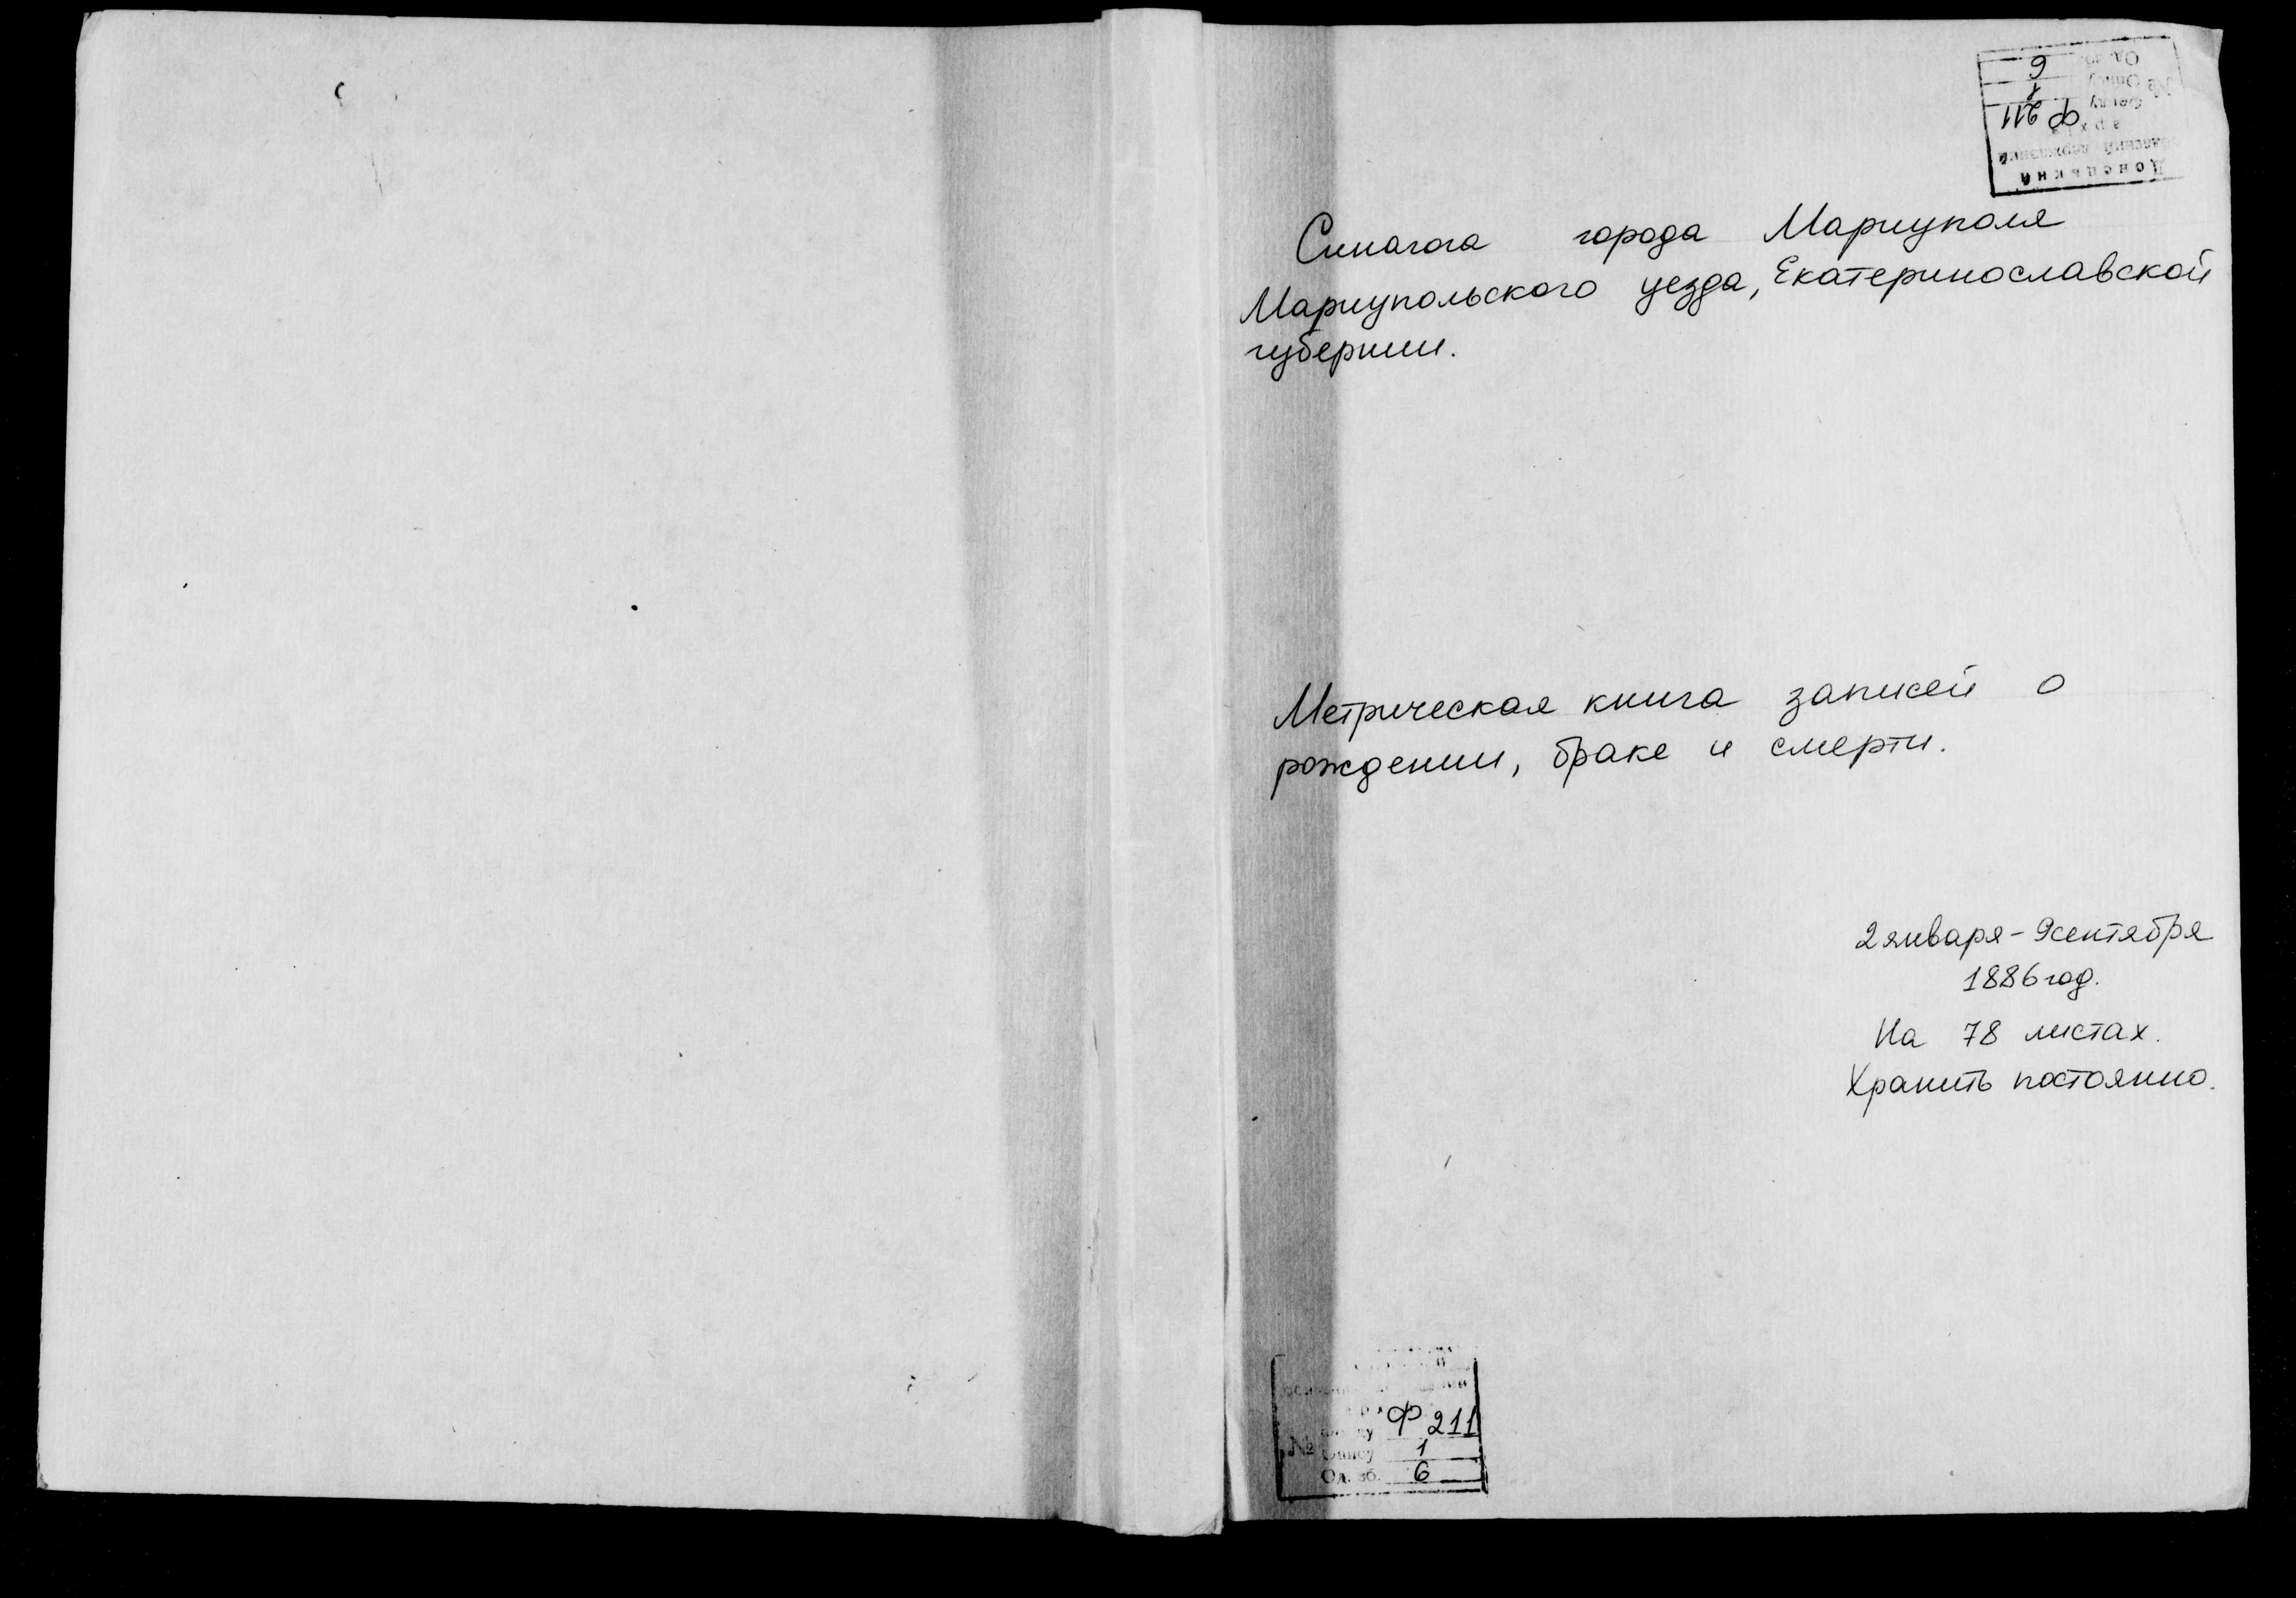 Донецький
державний
Ф 211
Опису 1
Од. зб. 6
Синагога города Мариуполя
Мариупольского уезда, Екатеринославской
губернии.
Метрическая книга записей о
рождении, браке и смерти.
2 января - 9 сентября
1886 год.
На 78 листах.
Хранить постоянно.
Ф 211
№ Опису 1
Од. зб. 6